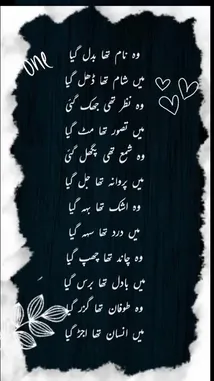 one
وہ نام تھا بدل گیا
میں شام تھا ڈھل گیا
وہ نظر تھی جھک گئی
میں تصور تھا مٹ گیا
وہ شمع تھی پگھل گئی
میں پروانہ تھا جل گیا
وہ اشک تھا بہہ گیا
میں درد تھا سہہ گیا
وہ چاند تھا چھپ گیا
میں بادل تھا برس گیا
وہ طوفان تھا گزر گیا
میں انسان تھا اجڑ گیا